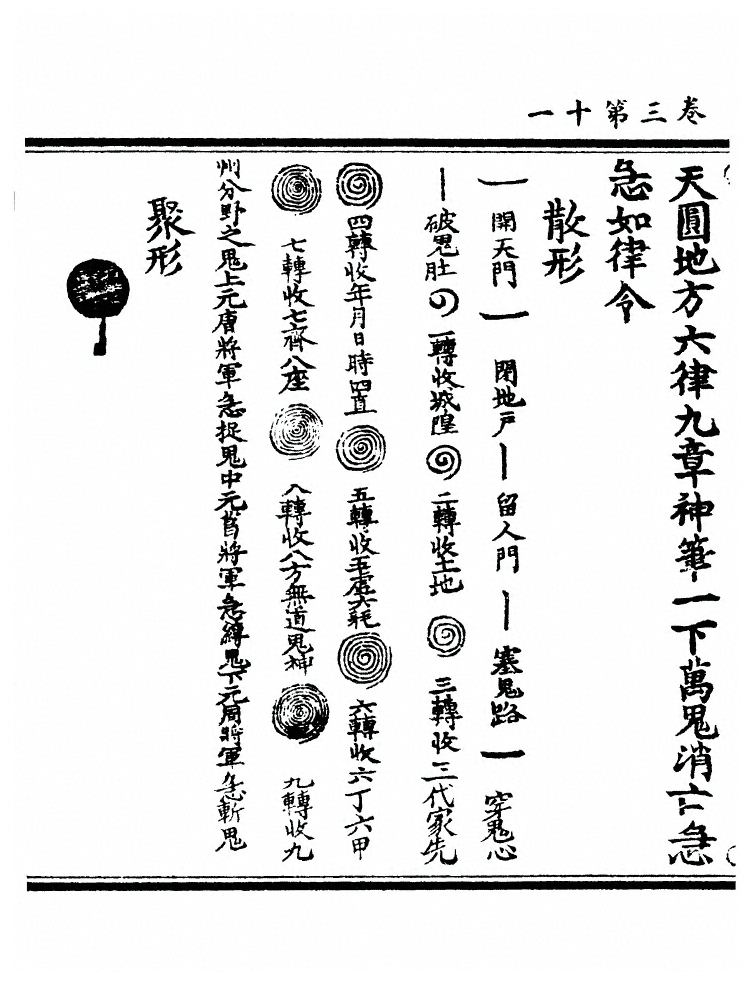 卷三第十一
天圓地方六律九章神筆一下萬鬼消亡急
急如律令
散形
開天門 閉地戶 留人門 塞鬼路 穿鬼心
破鬼肚 一轉收城隍 二轉收土地 三轉收三代家先
四轉收年月日時四直 五轉收五虛六耗 六轉收六丁六甲
七轉收七齊八座 八轉收八方無道鬼神 九轉收九
州分野之鬼上元唐將軍急捉鬼中元葛將軍急縛鬼下元周將軍急斬鬼
聚形